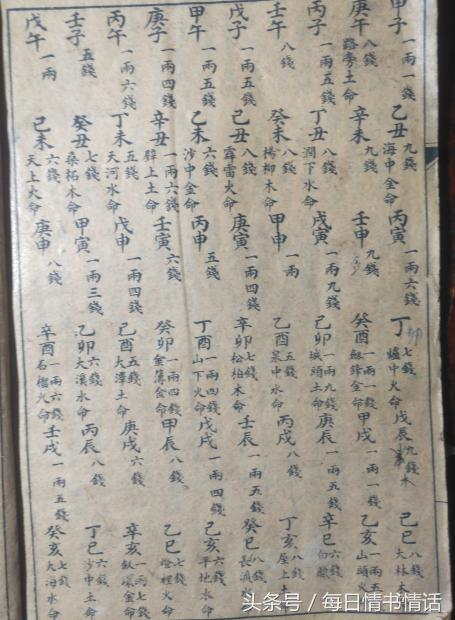 甲子 一兩一錢 乙丑 九錢 海中金命 丙寅 一兩六錢 丁卯 七錢 爐中火命 戊辰 九錢 己巳 八錢 大林木
庚午 八錢 路旁土命 辛未 九錢 壬申 九錢 癸酉 一兩一錢 劍鋒金命 甲戌 一兩一錢 乙亥 一兩五 山頭火
丙子 一兩五錢 丁丑 八錢 澗下水命 戊寅 一兩九錢 己卯 一兩九錢 城頭土命 庚辰 一兩五錢 辛巳 六錢 白臘
壬午 八錢 癸未 八錢 楊柳木命 甲申 一兩 乙酉 五錢 泉中水命 丙戌 八錢 丁亥 八錢 屋上土
戊子 一兩五錢 己丑 八錢 霹雷火命 庚寅 一兩四錢 辛卯 七錢 松柏木命 壬辰 一兩五錢 癸巳 八錢 長流
甲午 一兩五錢 乙未 六錢 沙中金命 丙申 五錢 丁酉 一兩四錢 山下火命 戊戌 一兩四錢 己亥 六錢 平地水命
庚子 一兩四錢 辛丑 一兩六錢 壁上土命 壬寅 六錢 癸卯 一兩四錢 金簿金命 甲辰 八錢 乙巳 七錢 燈裡火命
丙午 一兩六錢 丁未 五錢 天河水命 戊申 一兩四錢 己酉 五錢 大澤土命 庚戌 六錢 辛亥 一兩七錢 釵環金命
壬子 五錢 癸丑 七錢 桑柘木命 甲寅 一兩三錢 乙卯 六錢 大溪水命 丙辰 八錢 丁巳 六錢 沙中土命
戊午 一兩 己未 六錢 天上火命 庚申 八錢 辛酉 一兩六錢 石榴火命 壬戌 一兩五錢 癸亥 七錢 大海水命
头条号 / 每日情书情话